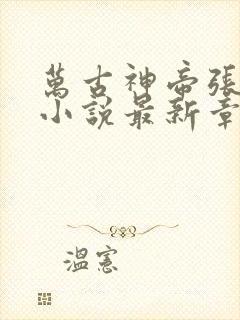 萬古神帝張
小說最新章
溫憲